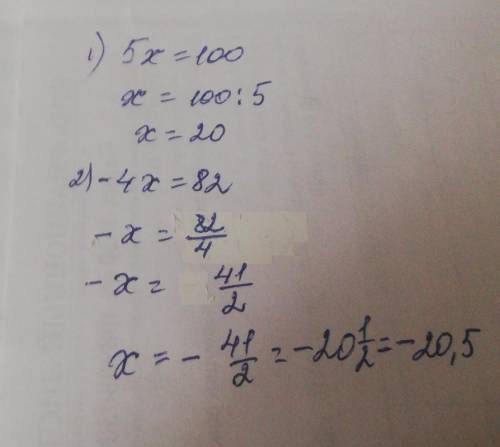 1) 5x = 100
x = 100 : 5
x = 20
2) -4x = 82
-x = 82/4
-x = 41/2
x = - 41/2 = -20 1/2 = -20,5